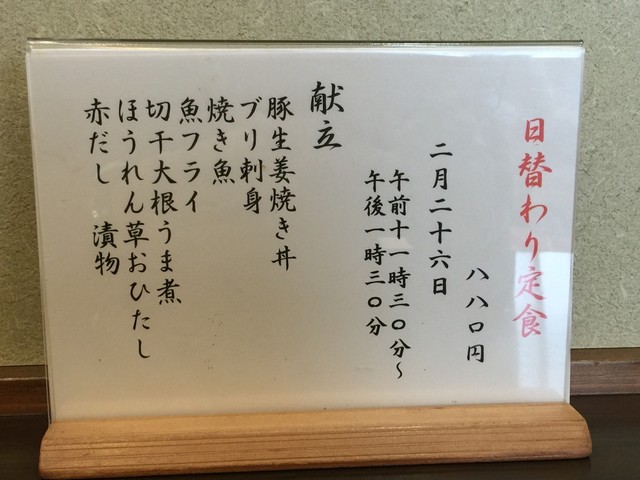 日替わり定食
八八〇円
二月二十六日
午前十一時三〇分～
午後一時三〇分
献立
豚生姜焼き丼
ブリ刺身
焼き魚
魚フライ
切干大根うま煮
ほうれん草おひたし
赤だし　漬物